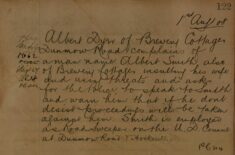 122
1st Augt 08
Albert Dyer of Brewery Cottages
Dunmow Road complains of
a man name Albert Smith, also
of Brewery Cottages insulting his wife
and using threats and asks
for the Police to speak to Smith
and warn him that if he dont
desist proceedings will be taken
against him Smith is employed
as Road Sweeper on the U.D. Council
at Dunmow Road